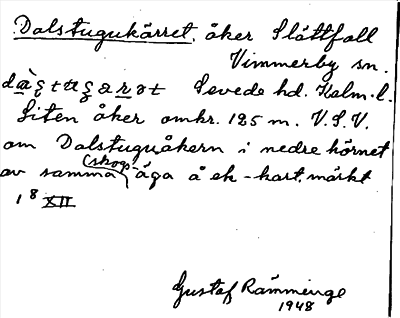 Dalstugukärret, åker Slåttfall
Vimmerby sn.
Sevede hd. Kalm. l.
Liten åker omkr. 125 m. V.S.V.
om Dalstuguåkern i nedre hörnet
av samma (skogs) äga å ek-kart. märkt
1 8 XII
Gustaf Rämminge
1948